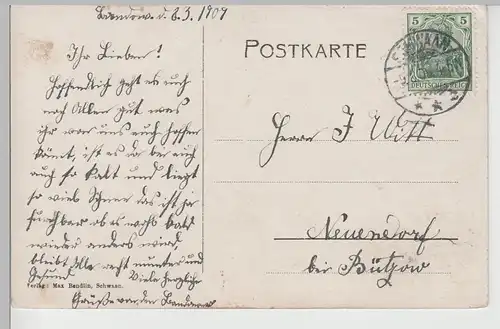 Bandow. d. 8.3.1909
POSTKARTE
5 5
DEUTSCHES REICH
SCHWAAN
Ihr Lieben!
Hoffentlich geht es euch
noch Allen gut was
ihr von uns auch hoffen
könnt, ist es da bei euch
auch so kalt und liegt
so viel Schnee das ist ja
furchbar ob es wohl bald
wieder anders wird
bleibt Alle recht munter und
Gesund Viele herzliche
Grüße von den Bandower
Herrn J Witt
Neuendorf
bei Bützow
Verlag: Max Bendlin, Schwaan.